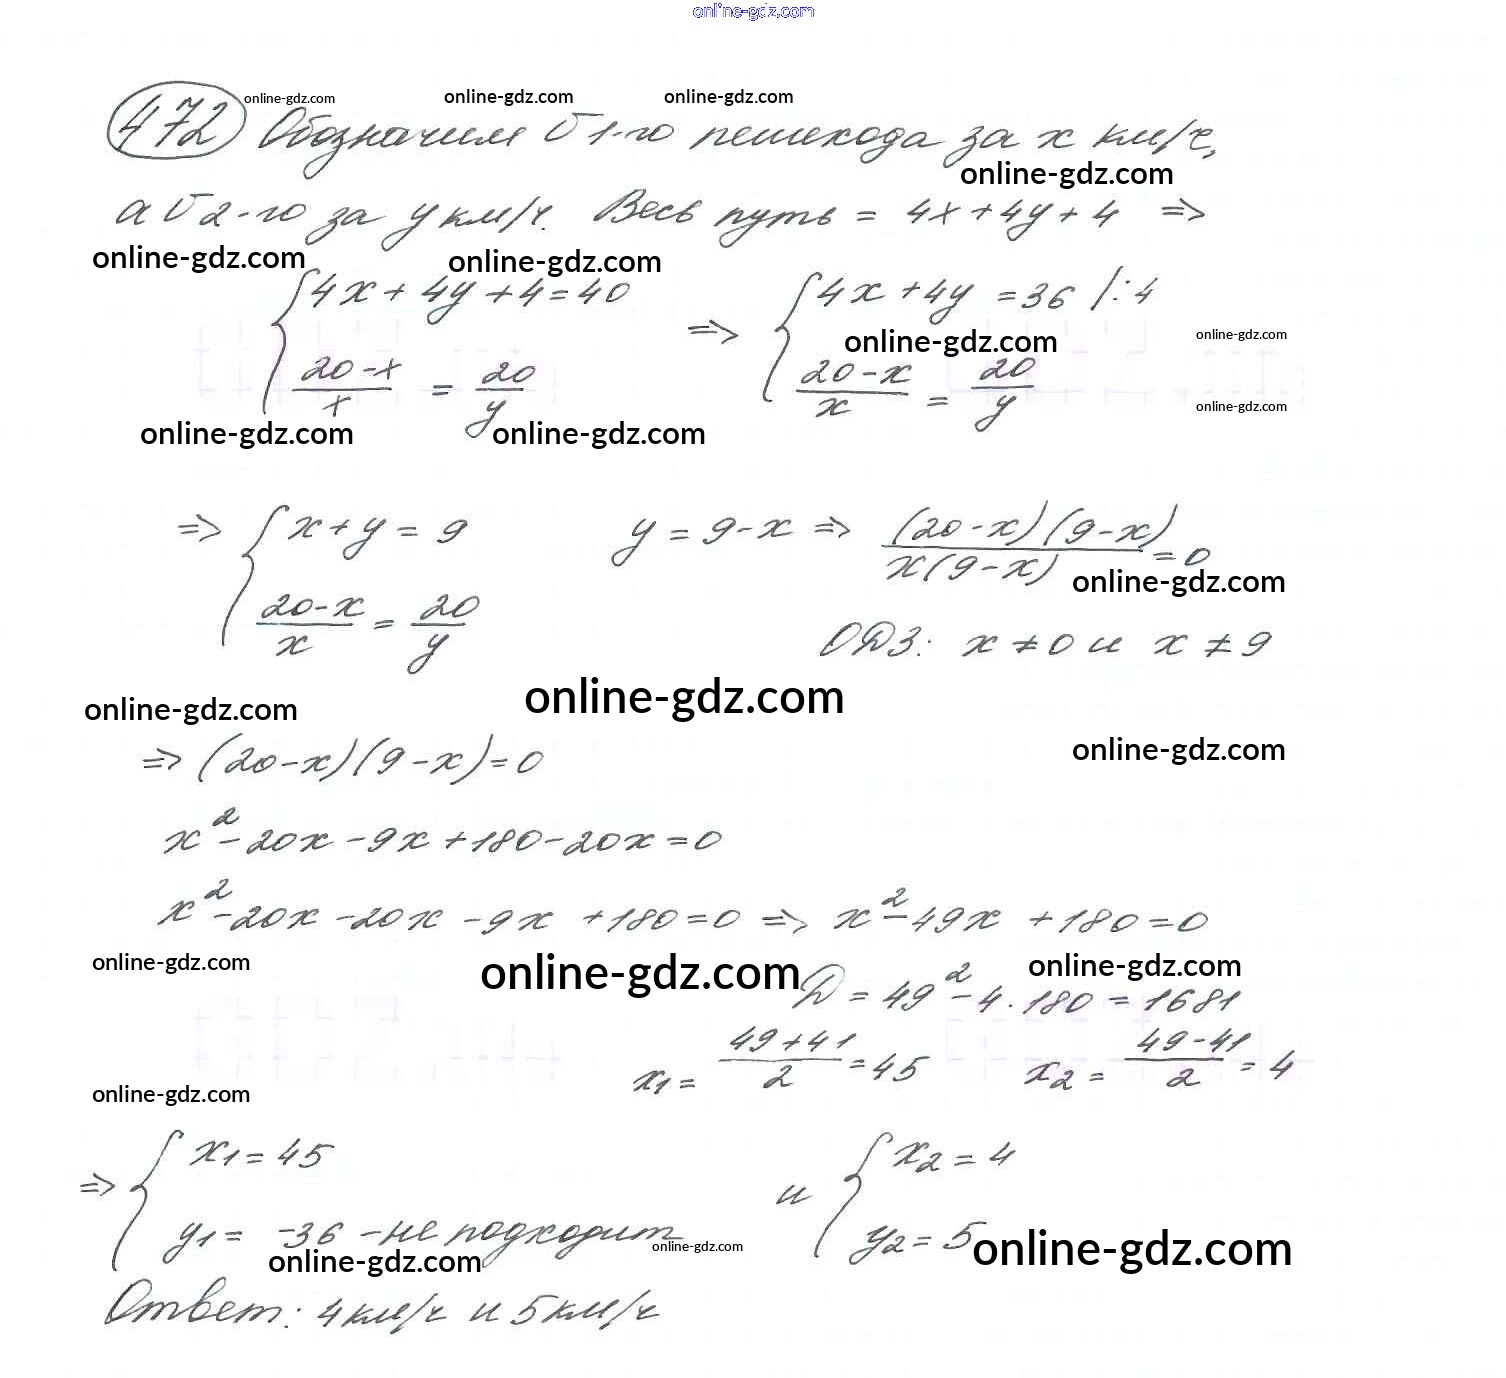 online-gdz.com
472 online-gdz.com online-gdz.com online-gdz.com
Обозначим V 1-го пешехода за x км/ч,
online-gdz.com
а V 2-го за y км/ч. Весь путь = 4x + 4y + 4 =>
online-gdz.com online-gdz.com
{ 4x + 4y + 4 = 40 => { 4x + 4y = 36 /:4
online-gdz.com online-gdz.com
(20-x)/x = 20/y (20-x)/x = 20/y
online-gdz.com
online-gdz.com online-gdz.com
=> { x + y = 9 y = 9-x => (20-x)(9-x)/x(9-x) = 0
online-gdz.com
(20-x)/x = 20/y ОДЗ: x ≠ 0 и x ≠ 9
online-gdz.com online-gdz.com
online-gdz.com
=> (20-x)(9-x) = 0
x² - 20x - 9x + 180 - 20x = 0
x² - 20x - 20x - 9x + 180 = 0 => x² - 49x + 180 = 0
online-gdz.com online-gdz.com online-gdz.com
D = 49² - 4 · 180 = 1681
x1 = (49+41)/2 = 45 x2 = (49-41)/2 = 4
online-gdz.com
=> { x1 = 45 и { x2 = 4
y1 = -36 - не подходит y2 = 5
online-gdz.com online-gdz.com online-gdz.com
Ответ: 4 км/ч и 5 км/ч